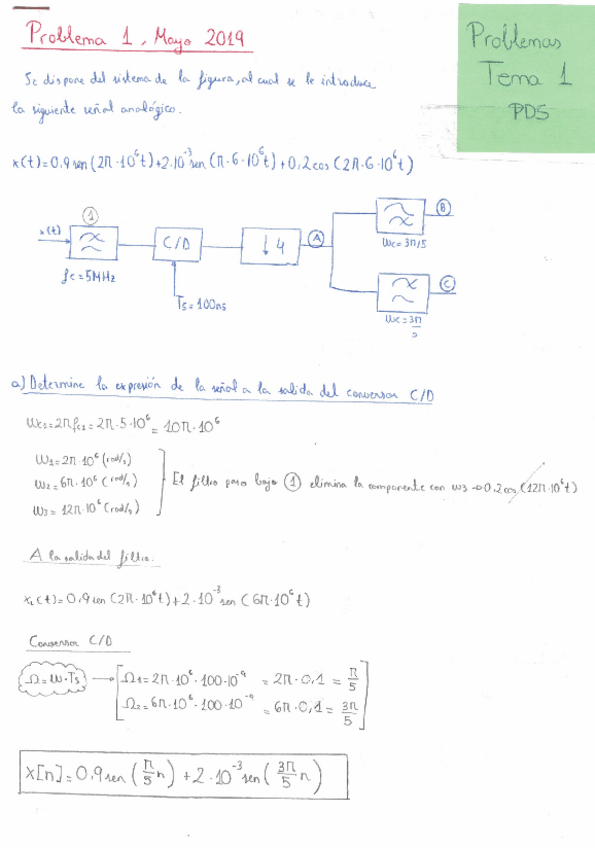 Problema 1, Mayo 2019
Problemas
Tema 1
PDS
Se dispone del sistema de la figura, al cual se le introduce
la siguiente señal analógica.
x(t)=0.9 sen(2π·10⁶t)+2·10⁻³sen(π·6·10⁶t)+0,2cos(2π·6·10⁶t)
x(t)
①
fc=5MHz
C/D
Ts=100ns
↓4
Ⓐ
Ⓑ
Wc=3π/5
Ⓒ
Wc=3π/5
a) Determine la expresión de la señal a la salida del conversor C/D
Wc1=2πfc1=2π·5·10⁶=10π·10⁶
W1=2π·10⁶(rad/s)
W2=6π·10⁶(rad/s)
W3=12π·10⁶(rad/s)
El filtro paso bajo ① elimina la componente con w3→0.2cos(12π·10⁶t)
A la salida del filtro.
x₁(t)=0.9sen(2π·10⁶t)+2·10⁻³sen(6π·10⁶t)
Conversor C/D
Ω=W·Ts
Ω1=2π·10⁶·100·10⁻⁹ =2π·0,1=π/5
Ω2=6π·10⁶·100·10⁻⁹ =6π·0,1=3π/5
x[n]=0.9sen(π/5 n)+2·10⁻³sen(3π/5 n)